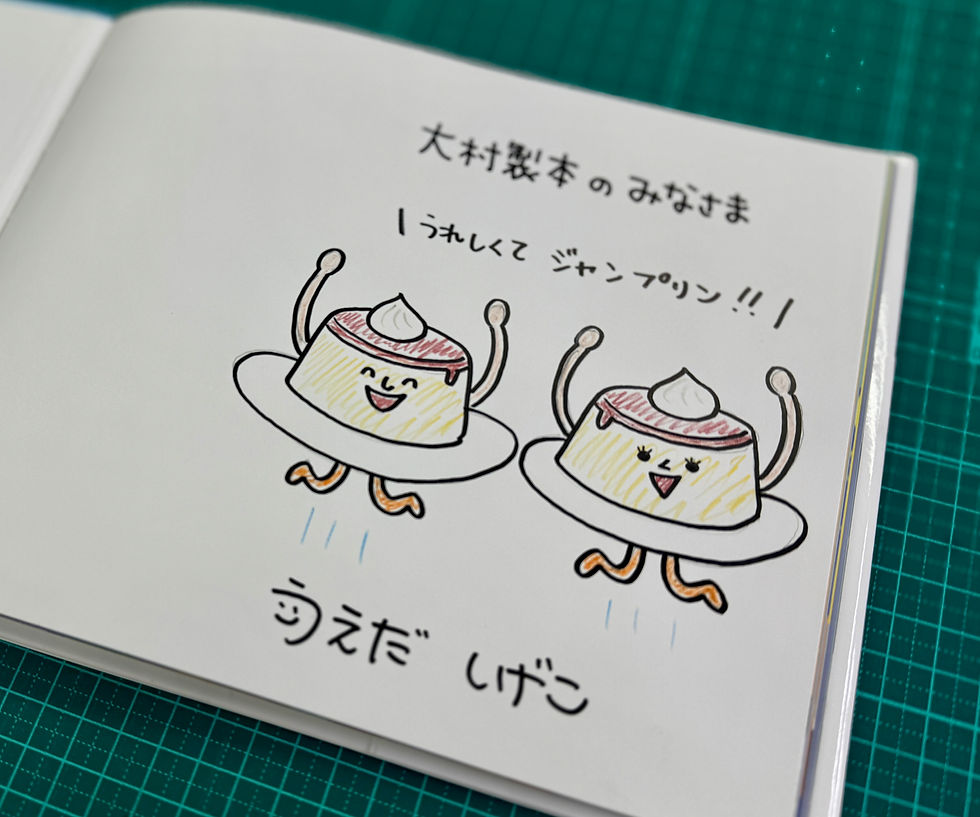 大村製本のみなさま
\うれしくて ジャンプリン!!/
うえだ しげこ